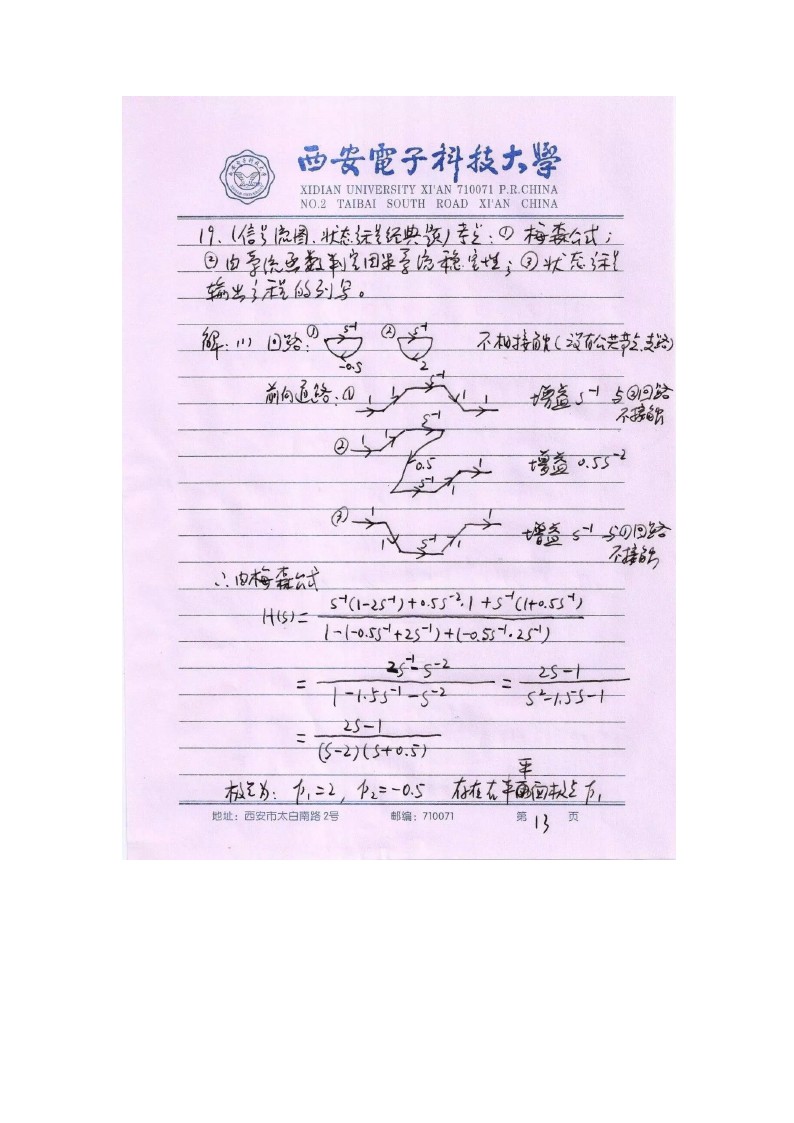 西安電子科技大學
XIDIAN UNIVERSITY XI'AN 710071 P.R.CHINA
NO.2 TAIBAI SOUTH ROAD XI'AN CHINA
19、(信号流图、状态方程经典题) 考点:① 梅森公式;
②由系统函数判定因果系统稳定性;③状态方程
输出方程的列写。
解:(1) 回路:① s⁻¹ -0.5 ② s⁻¹ 2 不相接触(没有公共节点、支路)
前向通路:① 1 1 s⁻¹ 1 1 增益 s⁻¹ 与②回路
不接触
② 1 1 s⁻¹ 0.5 s⁻¹ 1 1 增益 0.5s⁻²
③ 1 1 s⁻¹ 1 1 增益 s⁻¹ 与①回路
不接触
∴由梅森公式
H(s)= s⁻¹(1-2s⁻¹)+0.5s⁻²·1+s⁻¹(1+0.5s⁻¹)
1-(-0.5s⁻¹+2s⁻¹)+(-0.5s⁻¹·2s⁻¹)
= 2s⁻¹-s⁻² / 1-1.5s⁻¹-s⁻² = 2s-1 / s²-1.5s-1
= 2s-1 / (s-2)(s+0.5)
极点为: p₁=2, p₂=-0.5 存在右半平面极点 p₁
地址:西安市太白南路2号 邮编:710071 第 13 页